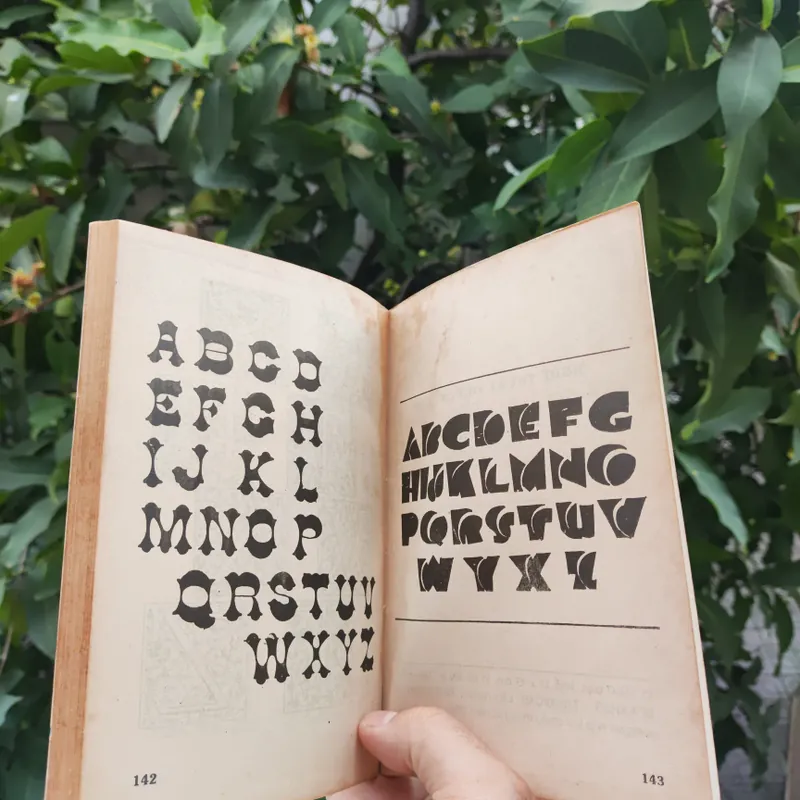 A B C D
E F G H
I J K L
M N O P
Q R S T U V
W X Y Z
142
A B C D E F G
H I J K L M N O
P Q R S T U V
W Y X Z
143